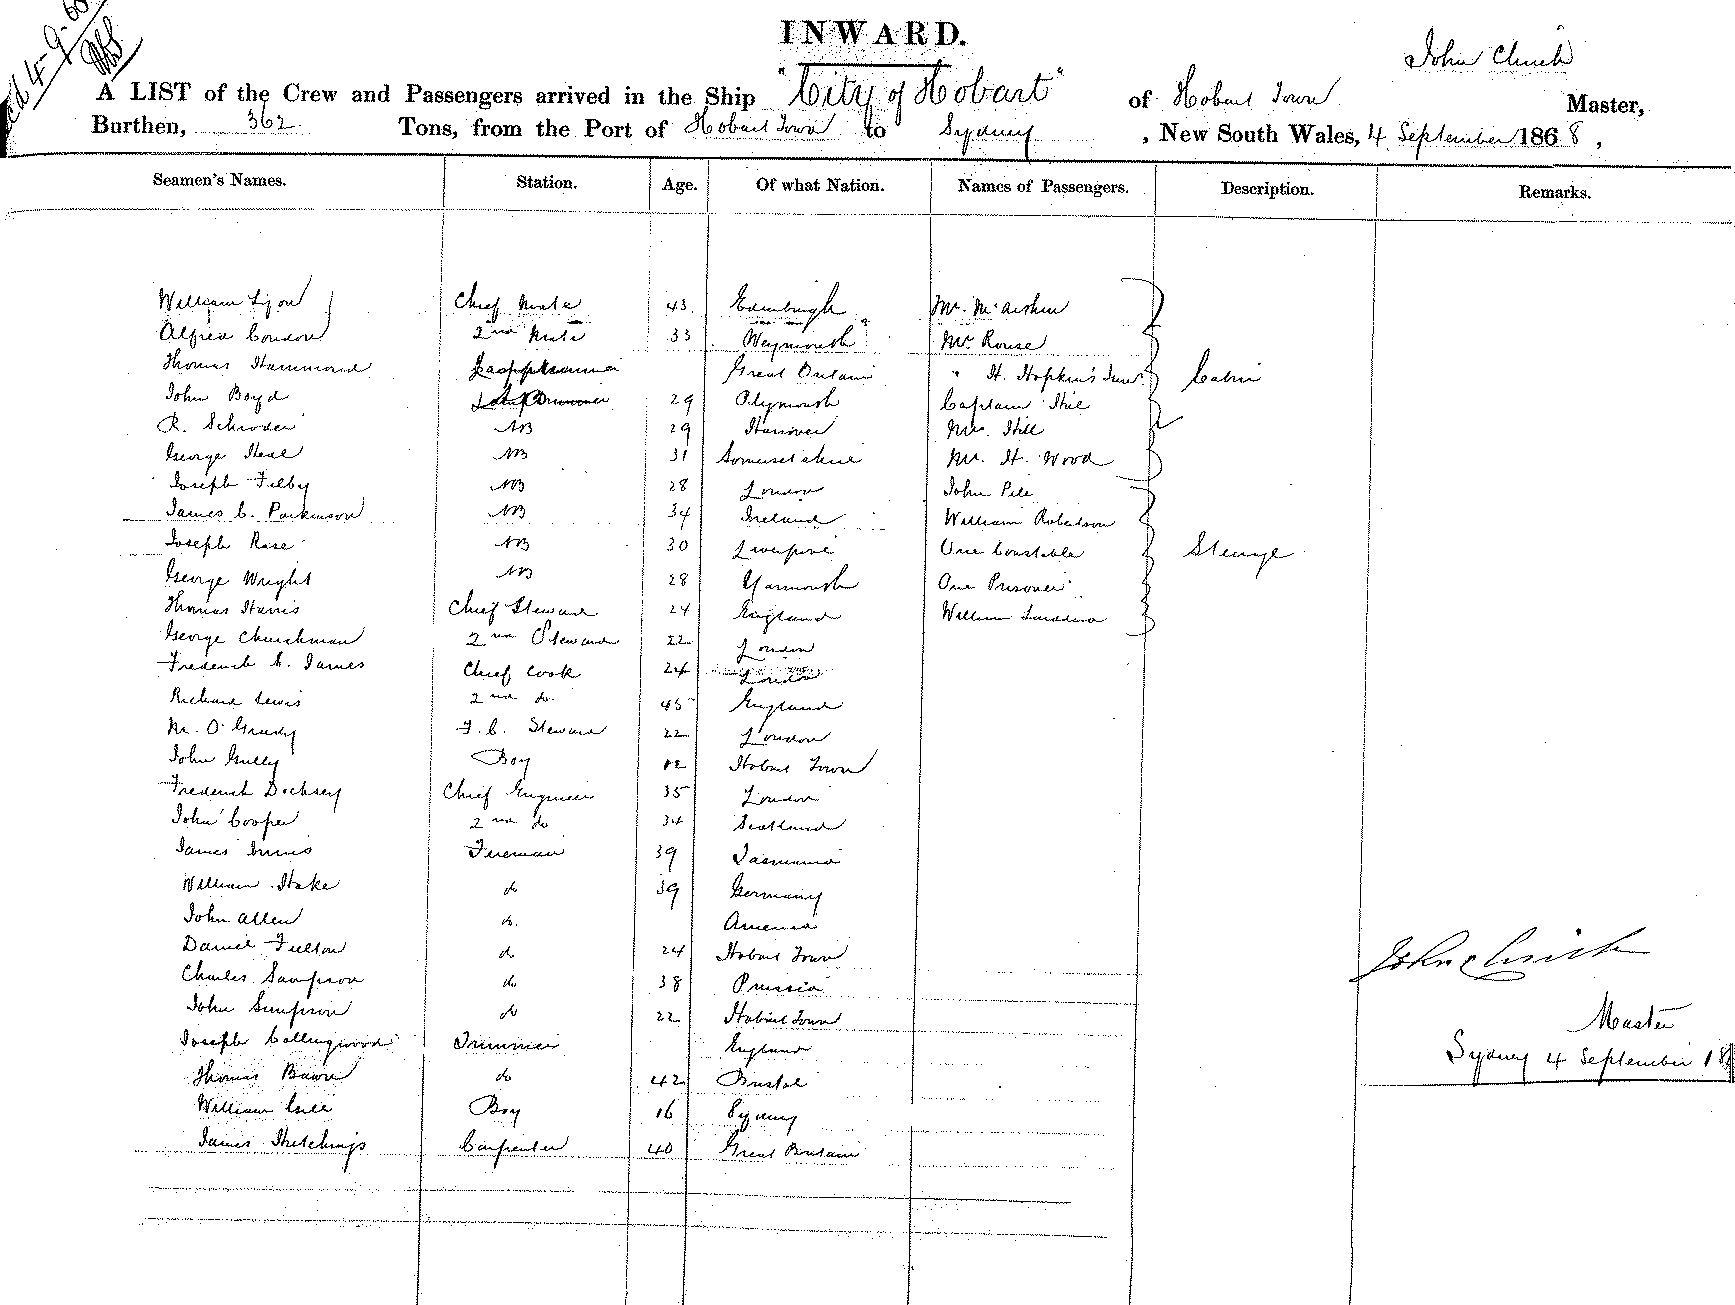 4-9-68
INWARD.
John Clinch
A LIST of the Crew and Passengers arrived in the Ship "City of Hobart" of Hobart Town Master,
Burthen, 362 Tons, from the Port of Hobart Town to Sydney, New South Wales, 4 September 1868,
Seamen's Names. Station. Age. Of what Nation. Names of Passengers. Description. Remarks.
William Chief Mate 43 Edinburgh Mr.
Alfred Condon 2nd Mate 33 Weymouth Mr Rouse
Thomas Hammond Great Britain " H. Hopkins Junr Cabin
John Boyd 29 Plymouth Captain Hill
R. Schroder AB 29 Hanover Mrs. Hill
George Heal AB 31 Somersetshire Mr. H. Wood
Joseph Filby AB 28 London John Pile
James C. Parkinson AB 34 Ireland William Robertson
Joseph Rose AB 30 Liverpool One Constable Steerage
George Wright AB 28 Yarmouth One Prisoner
Thomas Harris Chief Steward 24 England William
George Churchman 2nd Steward 22 London
Frederick C. James Chief Cook 24 London
Richard Lewis 2nd do 45 England
M. O'Grady F. C. Steward 22 London
John Gully Boy 12 Hobart Town
Frederick Dochsey Chief Engineer 35 London
John Cooper 2nd do 34 Scotland
James Innis Fireman 39 Tasmania
William Hake do 39 Germany
John Allen do America
Daniel Fulton do 24 Hobart Town
Charles Sampson do 38 Prussia
John Simpson do 22 Hobart Town
Joseph Collingwood Trimmer England
Thomas do 42 Bristol
William Boy 16 Sydney
James Hutchings Carpenter 40 Great Britain
John Clinch
Master
Sydney 4 September 18